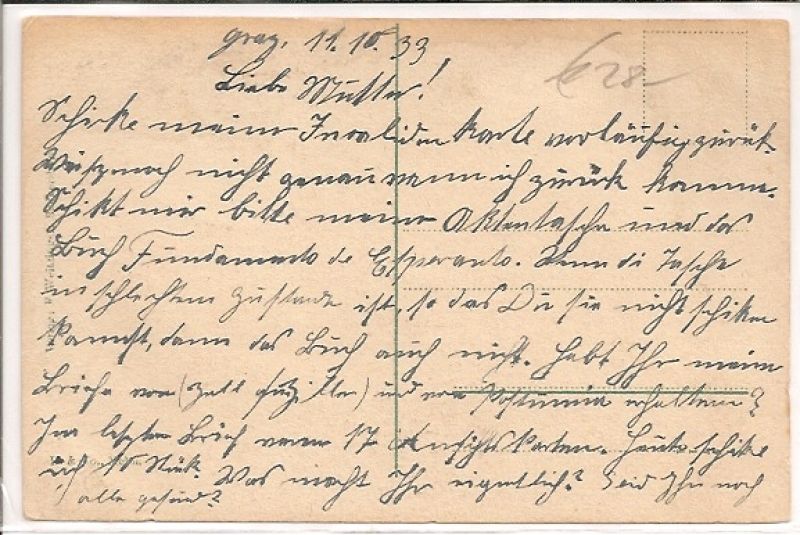 Graz, 11.10.33
Liebe Mutter!
Schicke meine Invaliden Karte vorläufig zurük.
Weiß noch nicht genau wann ich zurük komme.
Schikt mir bitte meine Aktentasche und das
Buch Fundamento de Esperanto. Wenn di Tasche
in schlechtem Zustande ist, so das Du sie nicht schiken
kannst, dann das Buch auch nicht. Habt Ihr meine
Briefe von (Zell) und von Postumia erhalten?
Im letzten Brief waren 17 Ansichtskarten. Heute schike
ich 15 Stük. Was macht Ihr eigentlich? Seid Ihr noch
alle gesund?
€ 28